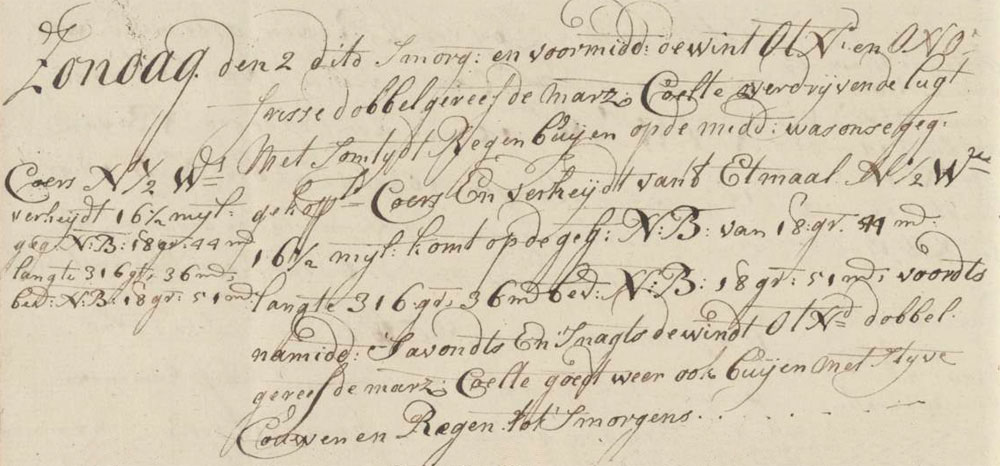 Zondag den 2 dito Smorg: en voormidd: de wint Ot N: en ONO:
frisse dobbelgereefde marz: Coelte verdryvende lugt
Met Somtydt Regen buijen op de midd: was onse geg:
gekopte Coers En verheijdt van't Etmaal N ½ W
16½ myl: komt op de geg: N:B: van 18:gr: 44 md:
langte 316:gr: 36 md bev: N:B: 18 gr: 51 md: voordts
namidd: Savondts En Snagts de windt Ot N dobbel:
gereefde marz: Coelte goedt weer ook buijen Met Styve
Couwen en Regen: tot Smorgens . . . . . .
Coers N ½ W
verheydt 16½ myl:
geg: N:B: 18 gr: 44 md
langte 316 gr: 36 md:
bev: N:B: 18 gr: 51 md: